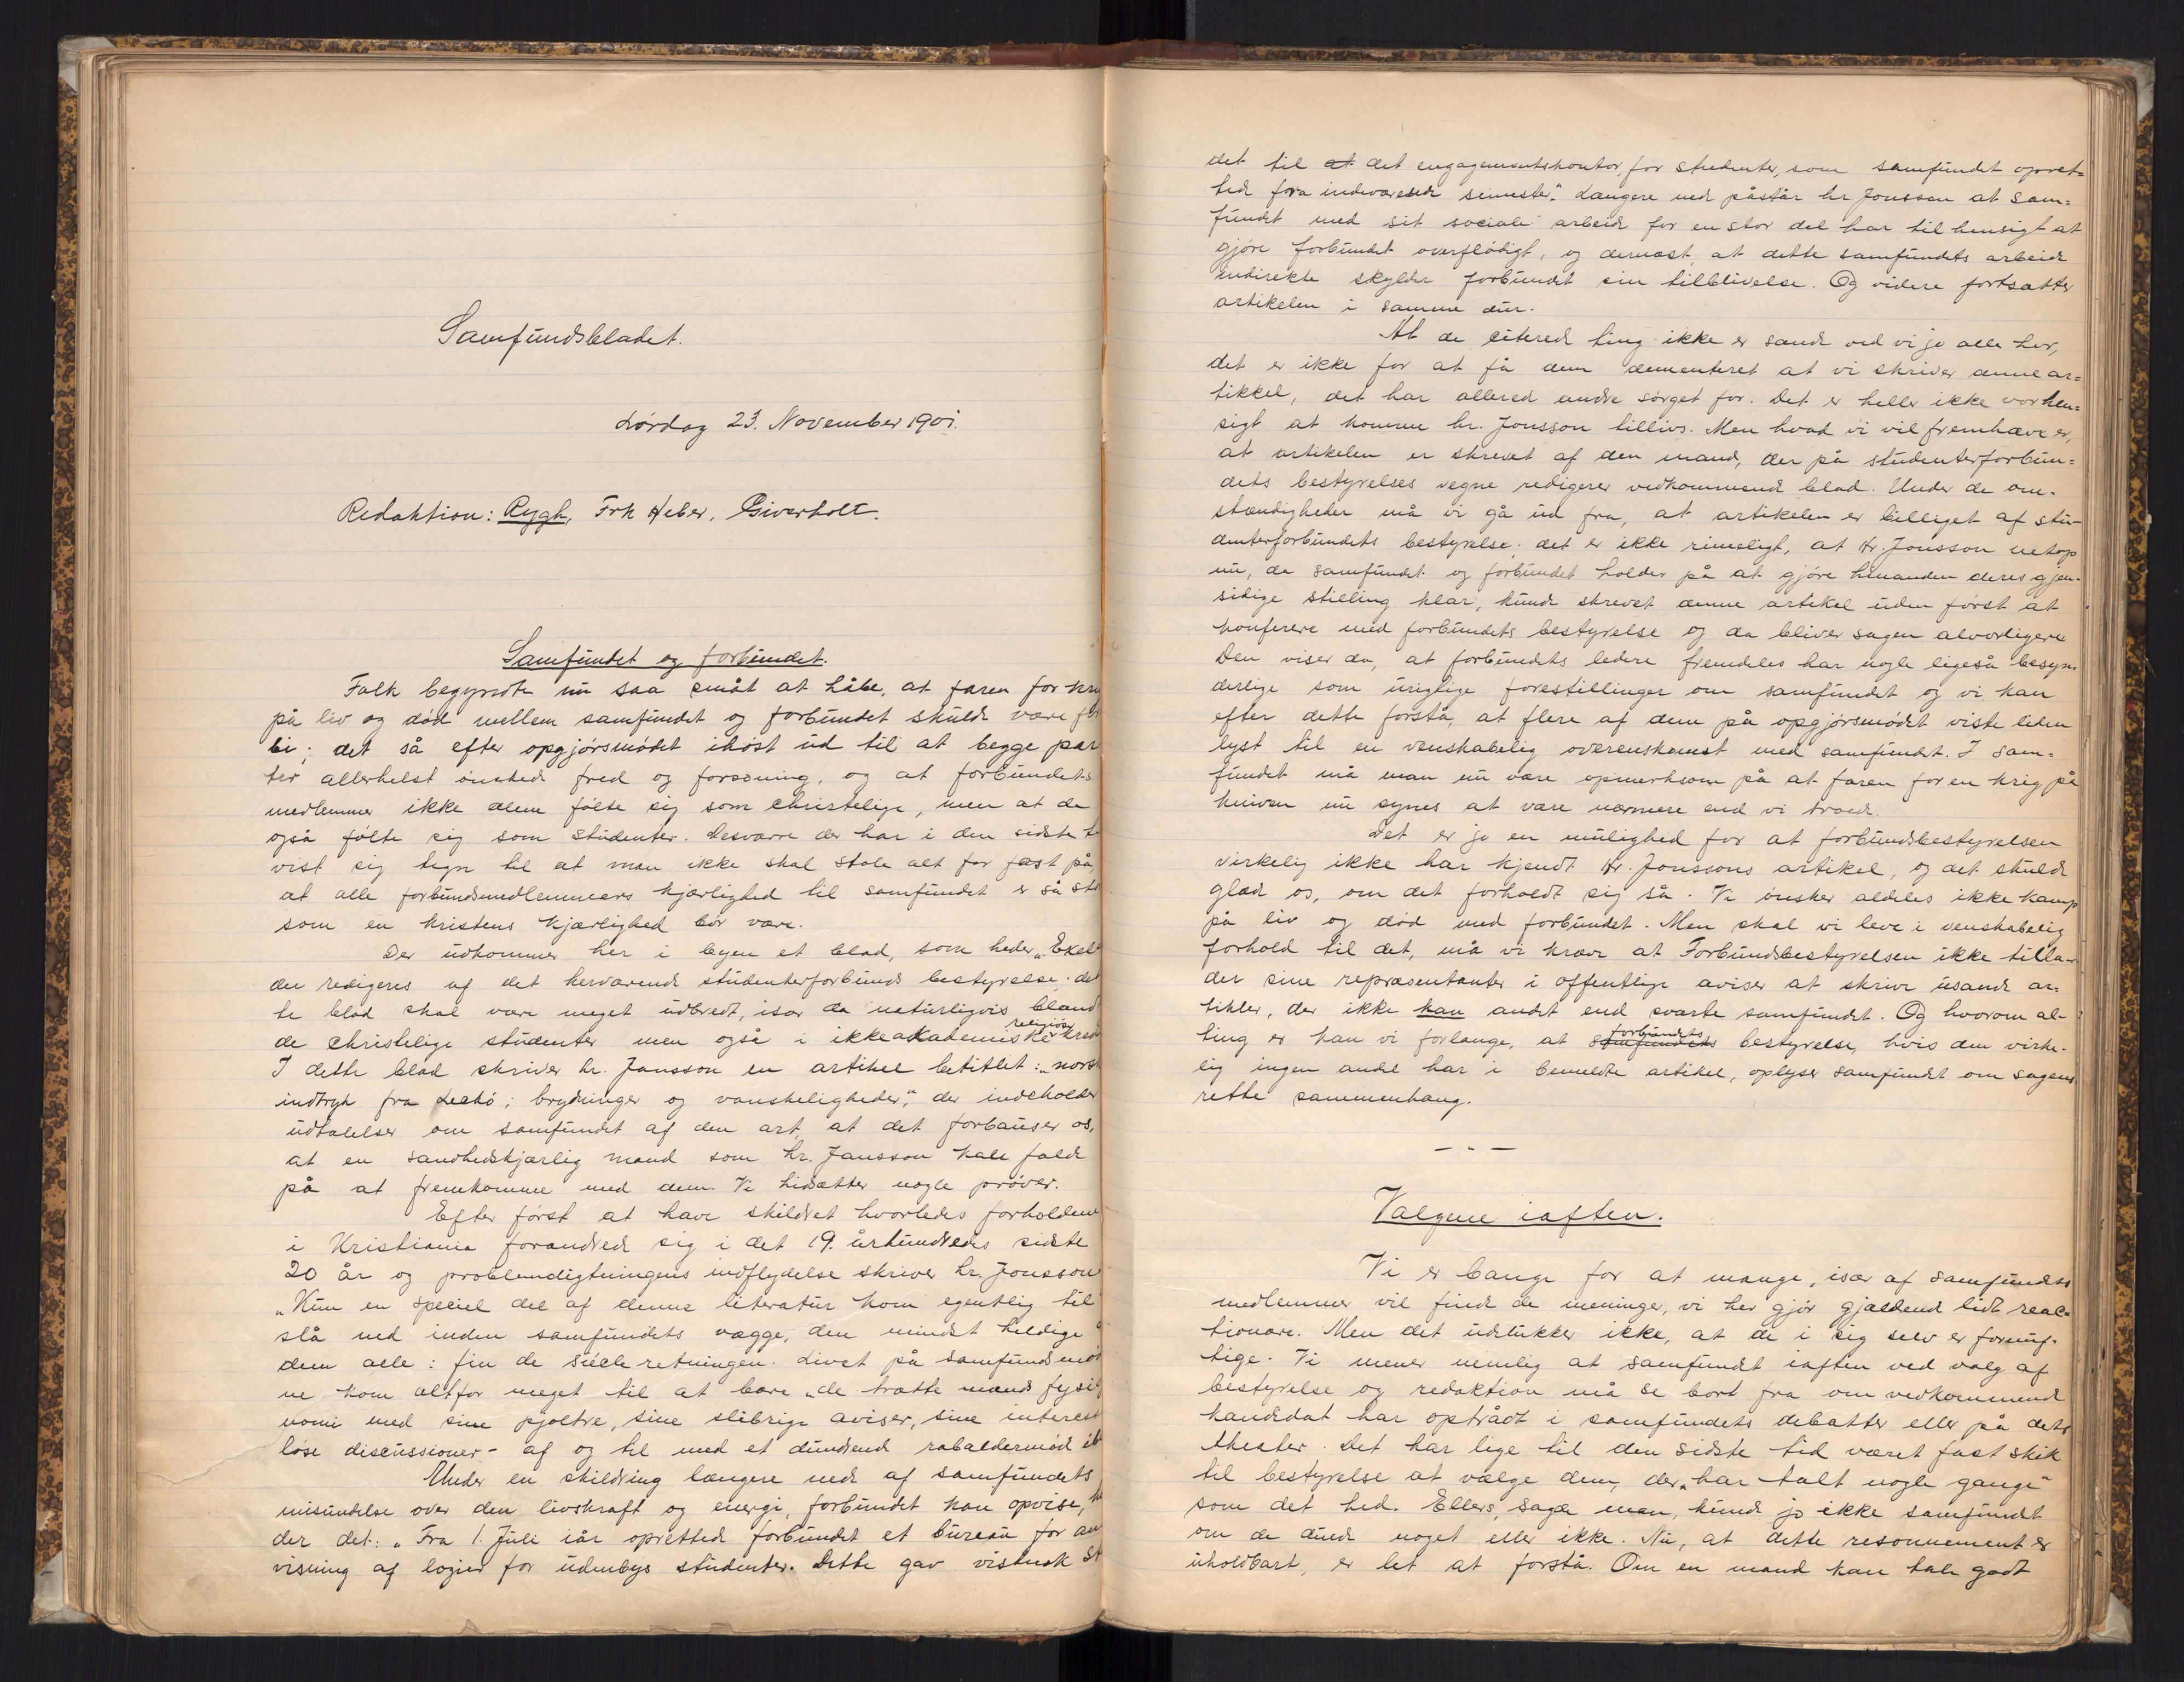 Samfundsbladet.
Lørdag 23. November 1901.
Redaktion: Rygh, Frk Heber, Giverholt.
Samfundet og forbundet.
Folk begyndte nu saa småt at håbe, at faren for kri
på liv og død mellem samfundet og forbundet skulde være for
bi; det så efter opgjørsmødet ihøst ud til at begge par
ter allerhelst ønskede fred og forsoning, og at forbundets
medlemmer ikke alene følte sig som christelige, men at de
også følte sig som studenter. Desværre der har i den sidste t
vist sig tegn til at man ikke skal stole alt for fast på,
at alle forbundsmedlemmers kjærlighed til samfundet er så sto
som en kristens kjærlighed bør være.
Der udkommer her i byen et blad, som heder „Excel
der redigeres af det herværende studenterforbunds bestyrelse; det
te blad skal være meget udbredt, især da naturligvis bland
de christelige studenter men også i ikkeakademiske religiøse kred
I dette blad skriver hr. Jonsson en artikel betitlet: „norsk
indtryk fra Leckö; brydninger og vanskeligheder“, der indeholder
udtalelser om samfundet af den art, at det forbauser os,
at en sandhedskjærlig mand som hr. Jansson kale falde
på at fremkomme med dem. Vi hidsætter nogle prøver.
Efter først at have skildret hvorledes forholdene
i Kristiania forandred sig i det 19. århundredes sidste
20 år og problemdigtningens indflydelse skriver hr. Jonsson
„Kun en speciel del af denne literatur kom egentlig til
slå ned inden samfundets vægge, den mindst heldige a
dem alle: fin de siècle retningen. Livet på samfundsmød
ne kom altfor meget til at bære „de trætte mænds fysiog
nomi med sine pjoltre, sine slibrige aviser, sine interess
løse discussioner - af og til med et dundrende rabaldermøde ib
Under en skildring længere nede af samfundets
misundelse over den livskraft og energi, forbundet kan opvise, h
der det: „Fra 1. Juli iår oprettede forbundet et bureau for an
visning af logier for udenbys studenter. Dette gav vistnok St
det til at det engagementskontor, for studenter, som samfundet opret=
ted fra indeværende semester.“ Længere ned påstår hr Jonsson at Sam=
fundet med sit sociale arbeide for en stor del har til hensigt at
gjøre forbundet overflødigt, og dernæst, at dette samfundets arbeide
indirekte skylder forbundet sin tilblivelse. Og videre fortsætter
artikelen i samme dur.
At de citerede ting ikke er sande ved vi jo alle her,
det er ikke for at få dem dementeret at vi skriver denne ar=
tikkel, det har allerede andre sørget for. Det er heller ikke vor hen=
sigt at komme hr. Jonsson tillivs. Men hvad vi vil fremhæve er,
at artikelen er skrevet af den mand, der på studenterforbun=
dets bestyrelses vegne redigerer vedkommende blad. Under de om-
stændigheder må vi gå ud fra, at artikelen er billiget af stu-
denterforbundets bestyrelse; det er ikke rimeligt, at Hr. Jonsson netop
nu, da samfundet og forbundet holder på at gjøre hinanden deres gjen-
sidige stilling klar, kunde skrevet denne artikel uden først at
konferere med forbundets bestyrelse og da bliver sagen alvorligere
Den viser da, at forbundets ledere fremdeles har nogle ligeså besyn-
derlige som urigtige forestillinger om samfundet og vi kan
efter dette forstå, at flere af dem på opgjørsmødet viste liden
lyst til en venskabelig overenskomst med samfundet. I sam-
fundet må man nu være opmerksom på at faren for en krig på
kniven nu synes at være nærmere end vi troede.
Det er jo en mulighed for at forbundsbestyrelsen
virkelig ikke har kjendt Hr. Jonssons artikel, og det skulde
glæde os, om det forholdt sig så. Vi ønsker aldeles ikke kamp
på liv og død med forbundet. Men skal vi leve i venskabelig
forhold til det, må vi kræve at Forbundsbestyrelsen ikke tilla-
der sine repræsentanter i offentlige aviser at skrive usande ar-
tikler, der ikke kan andet end sværte samfundet. Og hvorom al-
ting er kan vi forlange, at samfundets forbundets bestyrelse, hvis den virke-
lig ingen andel har i bemeldte artikel, oplyser samfundet om sagens
rette sammenhæng.
Valgene iaften.
Vi er bange for at mange, især af samfundets
medlemmer vil finde de meninger, vi her gjør gjældende lidt reac=
tionære. Men det udelukker ikke, at de i sig selv er fornuf-
tige. Vi mener nemlig at samfundet iaften ved valg af
bestyrelse og redaktion må se bort fra om vedkommende
kandidat har optrådt i samfundets debatter eller på dets
theater. Det har lige til den sidste tid været fast skik
til bestyrelse at vælge dem, der „har talt nogle gange“
som det hed. Ellers, sagde man, kunde jo ikke samfundet
om de duede noget eller ikke. Nu, at dette resonnement er
uholdbart, er let at forstå. Om en mand kan tale godt